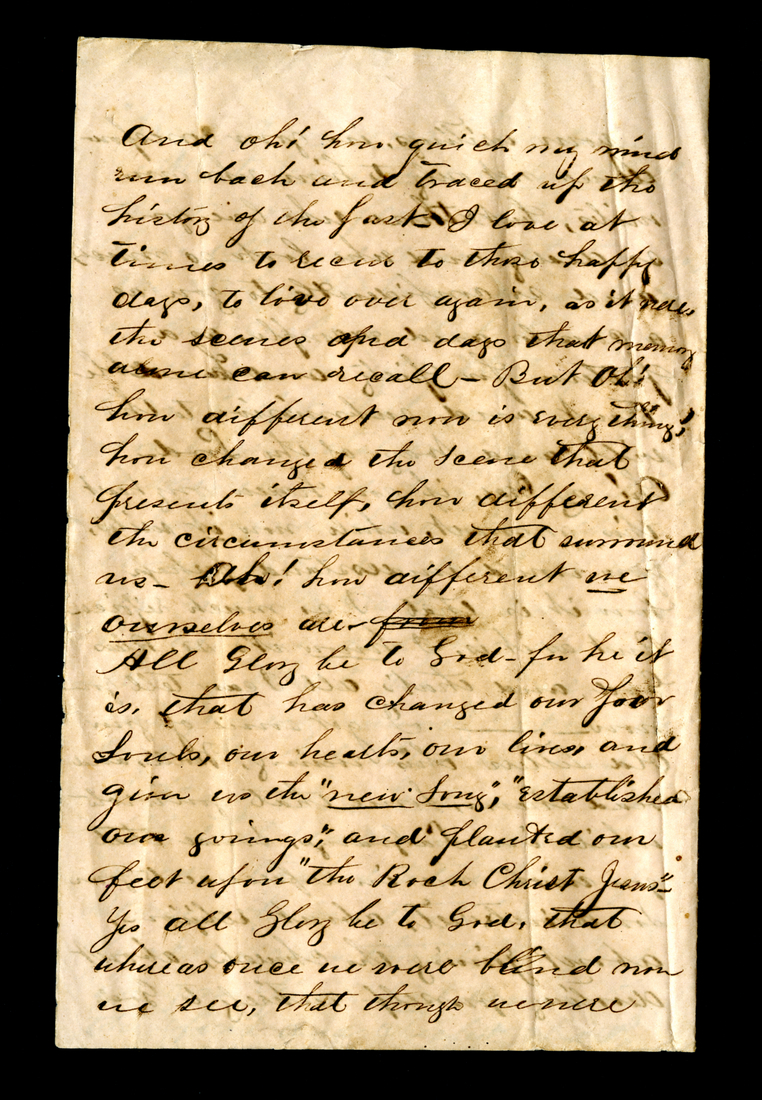 And oh! how quick my mind
run back and traced up the
history of the past. I love, at
times to recur to those happy
days, to live over again, as it were
the scenes and days that memory
alone can recall - But Oh!
how different now is everything;
how changed the scene that
presents itself, how different
the circumstances that surround
us - Ah! how different we
ourselves are
All Glory be to God - for he it
is, that has changed our poor
Souls, our hearts, our lives, and
given us the "new Song", "established
our goings", and planted our
feet upon "the Rock Christ Jesus" -
Yes all Glory be to God, that
whereas once we were blind now
we see, that though we were